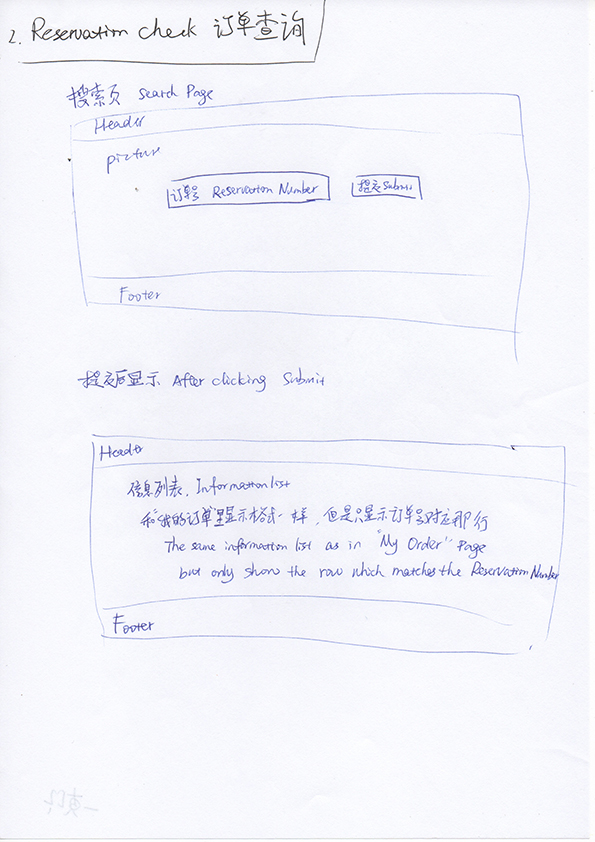 2. Reservation check 订单查询
搜索页 Search Page
Header
picture
订单号 Reservation Number
提交 Submit
Footer
提交后显示 After clicking Submit
Header
信息列表. Information list
和我的订单里显示格式一样,但是只显示订单号对应那行
The same information list as in "My Order" Page
but only show the row which matches the Reservation Number
Footer